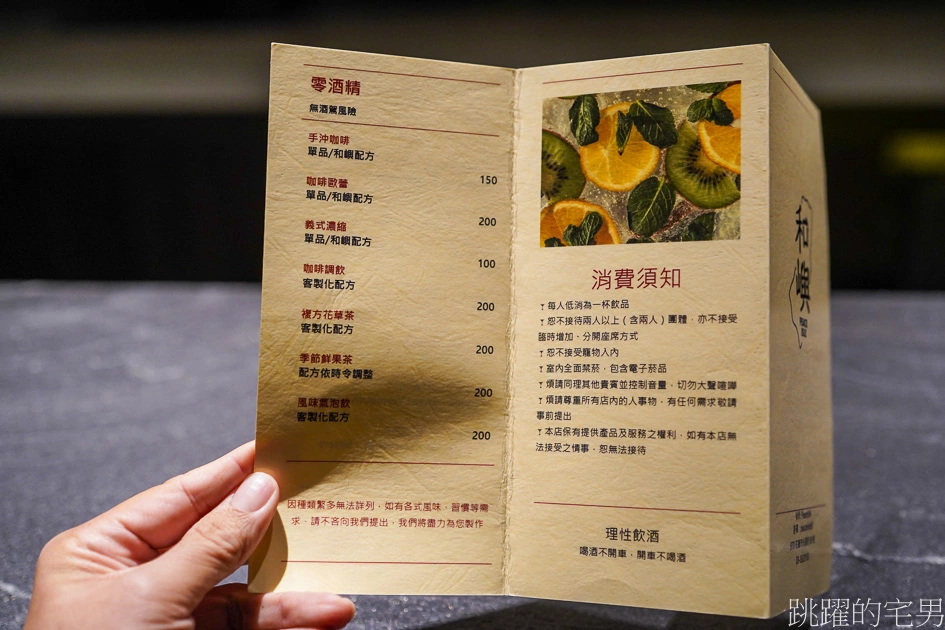 零酒精
無酒駕風險
手沖咖啡
單品/和嶼配方
150
咖啡歐蕾
單品/和嶼配方
200
義式濃縮
單品/和嶼配方
100
咖啡調飲
客製化配方
200
複方花草茶
客製化配方
200
季節鮮果茶
配方依時令調整
200
風味氣泡飲
客製化配方
200
因種類繁多無法詳列，如有各式風味、習慣等需
求，請不吝向我們提出，我們將盡力為您製作
消費須知
每人低消為一杯飲品
恕不接待兩人以上（含兩人）團體，亦不接受
臨時增加、分開座席方式
恕不接受寵物入內
室內全面禁菸，包含電子菸品
煩請同理其他貴賓並控制音量、切勿大聲喧嘩
煩請尊重所有店內的人事物，有任何需求敬請
事前提出
本店保有提供產品及服務之權利，如有本店無
法接受之情事，恕無法接待
理性飲酒
喝酒不開車，開車不喝酒
和嶼
跳躍的宅男